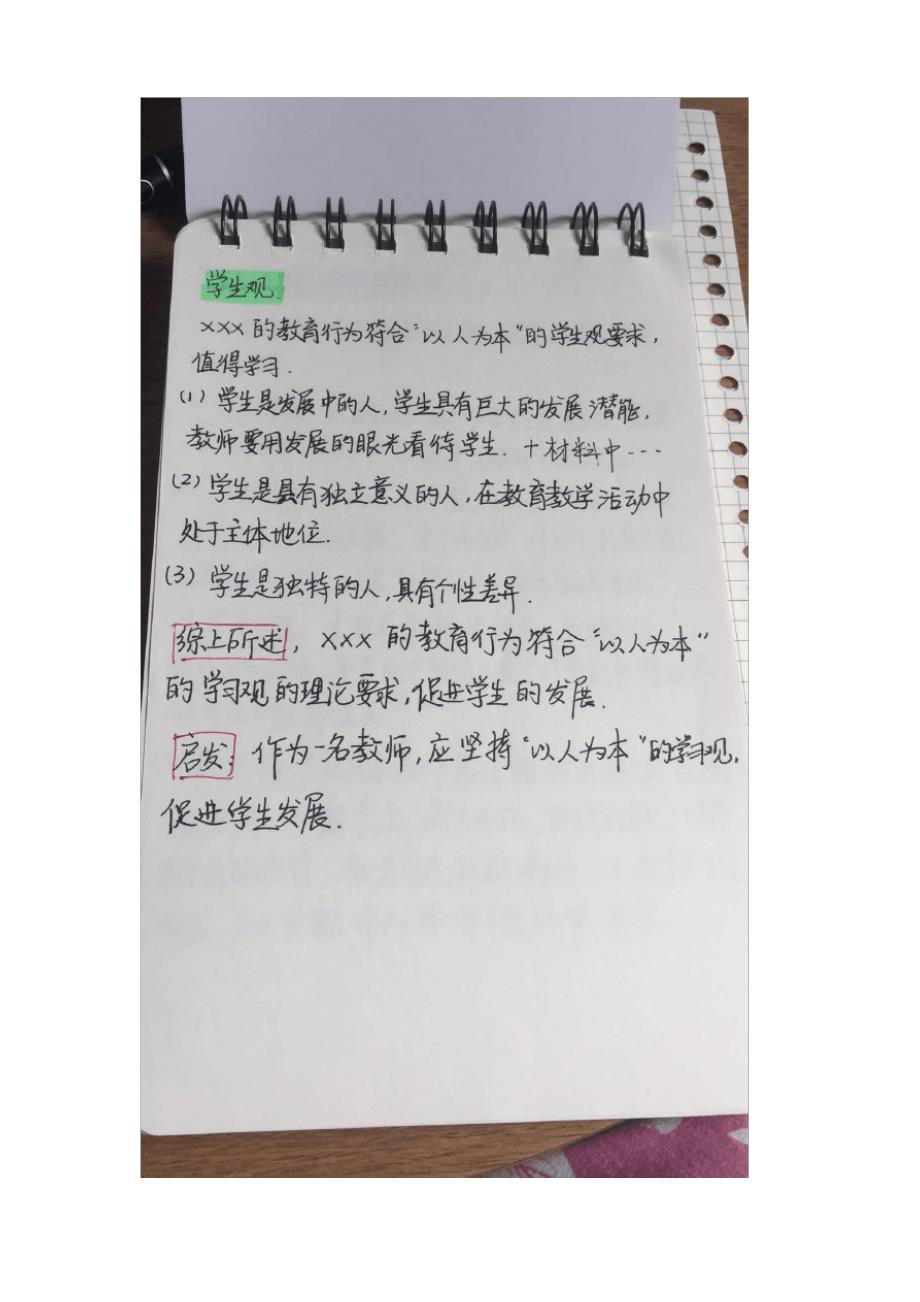 学生观.
xxx的教育行为符合"以人为本"的学生观要求,
值得学习.
(1) 学生是发展中的人,学生具有巨大的发展潜能,
教师要用发展的眼光看待学生. 十材料中---
(2) 学生是具有独立意义的人,在教育教学活动中
处于主体地位.
(3) 学生是独特的人,具有个性差异.
综上所述, xxx的教育行为符合"以人为本"
的学习观的理论要求,促进学生的发展.
启发: 作为一名教师,应坚持"以人为本"的学习观,
促进学生发展.